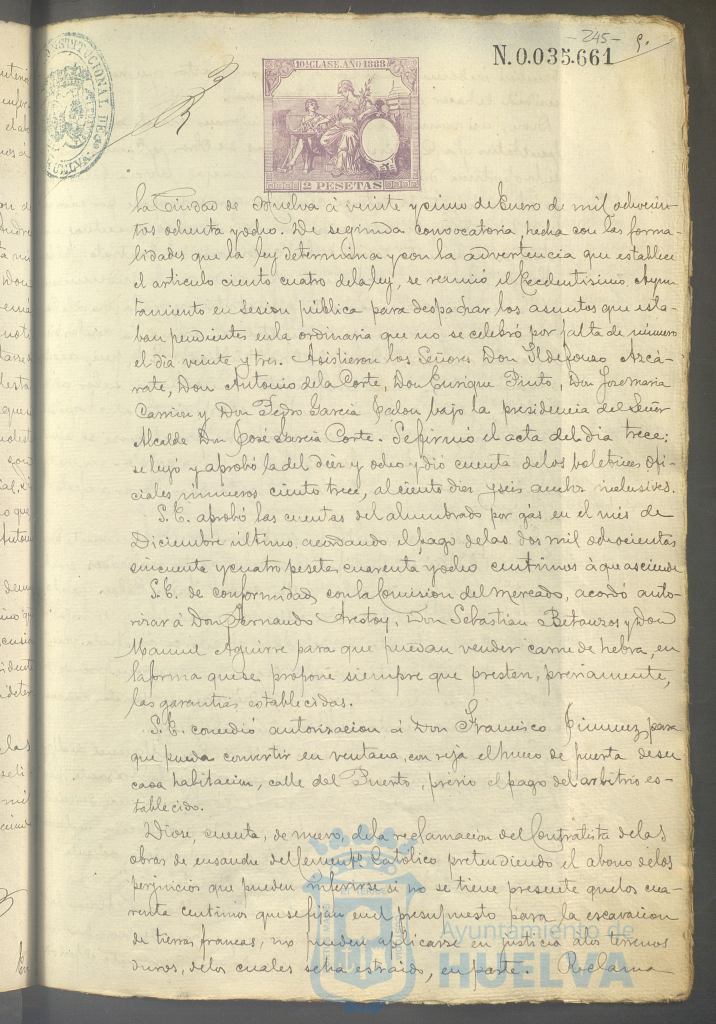 -245-
9.
N.0.035.661
10ª CLASE. AÑO 1888
2 PESETAS
la Ciudad de Huelva á veinte y cinco de Enero de mil ochocien-
tos ochenta y ocho. De segunda convocatoria, hecha con las forma-
lidades que la ley determina y con la advertencia que establece
el articulo ciento cuatro de la ley, se reunió el Excelentisimo Ayun-
tamiento en sesion pública para despachar los asuntos que esta-
ban pendientes en la ordinaria que no se celebró por falta de número
el dia veinte y tres. Asistieron los Señores Don Ildefonso Azcá-
rate, Don Antonio de la Corte, Don Enrique Pinto, Don José Maria
Carrion y Don Pedro Garcia Jalon bajo la presidencia del Señor
Alcalde Don José Garcia Corte. Se firmó el acta del dia trece;
se leyó y aprobó la del diez y ocho y dió cuenta de los boletines ofi-
ciales números ciento trece, al ciento diez y seis ambos inclusives.
S.E. aprobó las cuentas del alumbrado por gás en el més de
Diciembre último, acordando el pago de las dos mil ochocientas
cincuenta y cuatro pesetas cuarenta y ocho centimos á que asciende
S.E. de conformidad con la Comision del mercado, acordó auto-
rizar á Don Fernando Don Sebastian Betanzos y Don
Manuel Aguirre para que puedan vender carne de hebra, en
la forma que se propone siempre que presten, previamente,
las garantias establecidas.
S.E. concedió autorizacion á Don Francisco Jimenez para
que pueda convertir en ventana, con reja el hueco de puerta de su
casa habitacion, calle del Puerto, prévio el pago del arbitrio es-
tablecido.
Diose, cuenta, de nuevo, de la reclamacion del Contratista de las
obras de ensanche del Cementº Católico pretendiendo el abono de los
perjuicios que pueden inferirse si no se tiene presente que los cua-
renta centimos que se fijan en el presupuesto para la escavacion
de tierras francas, no pueden aplicarse en justicia á los terrenos
duros, de los cuales se ha estraido, en parte. Reclama
Ayuntamiento de
HUELVA